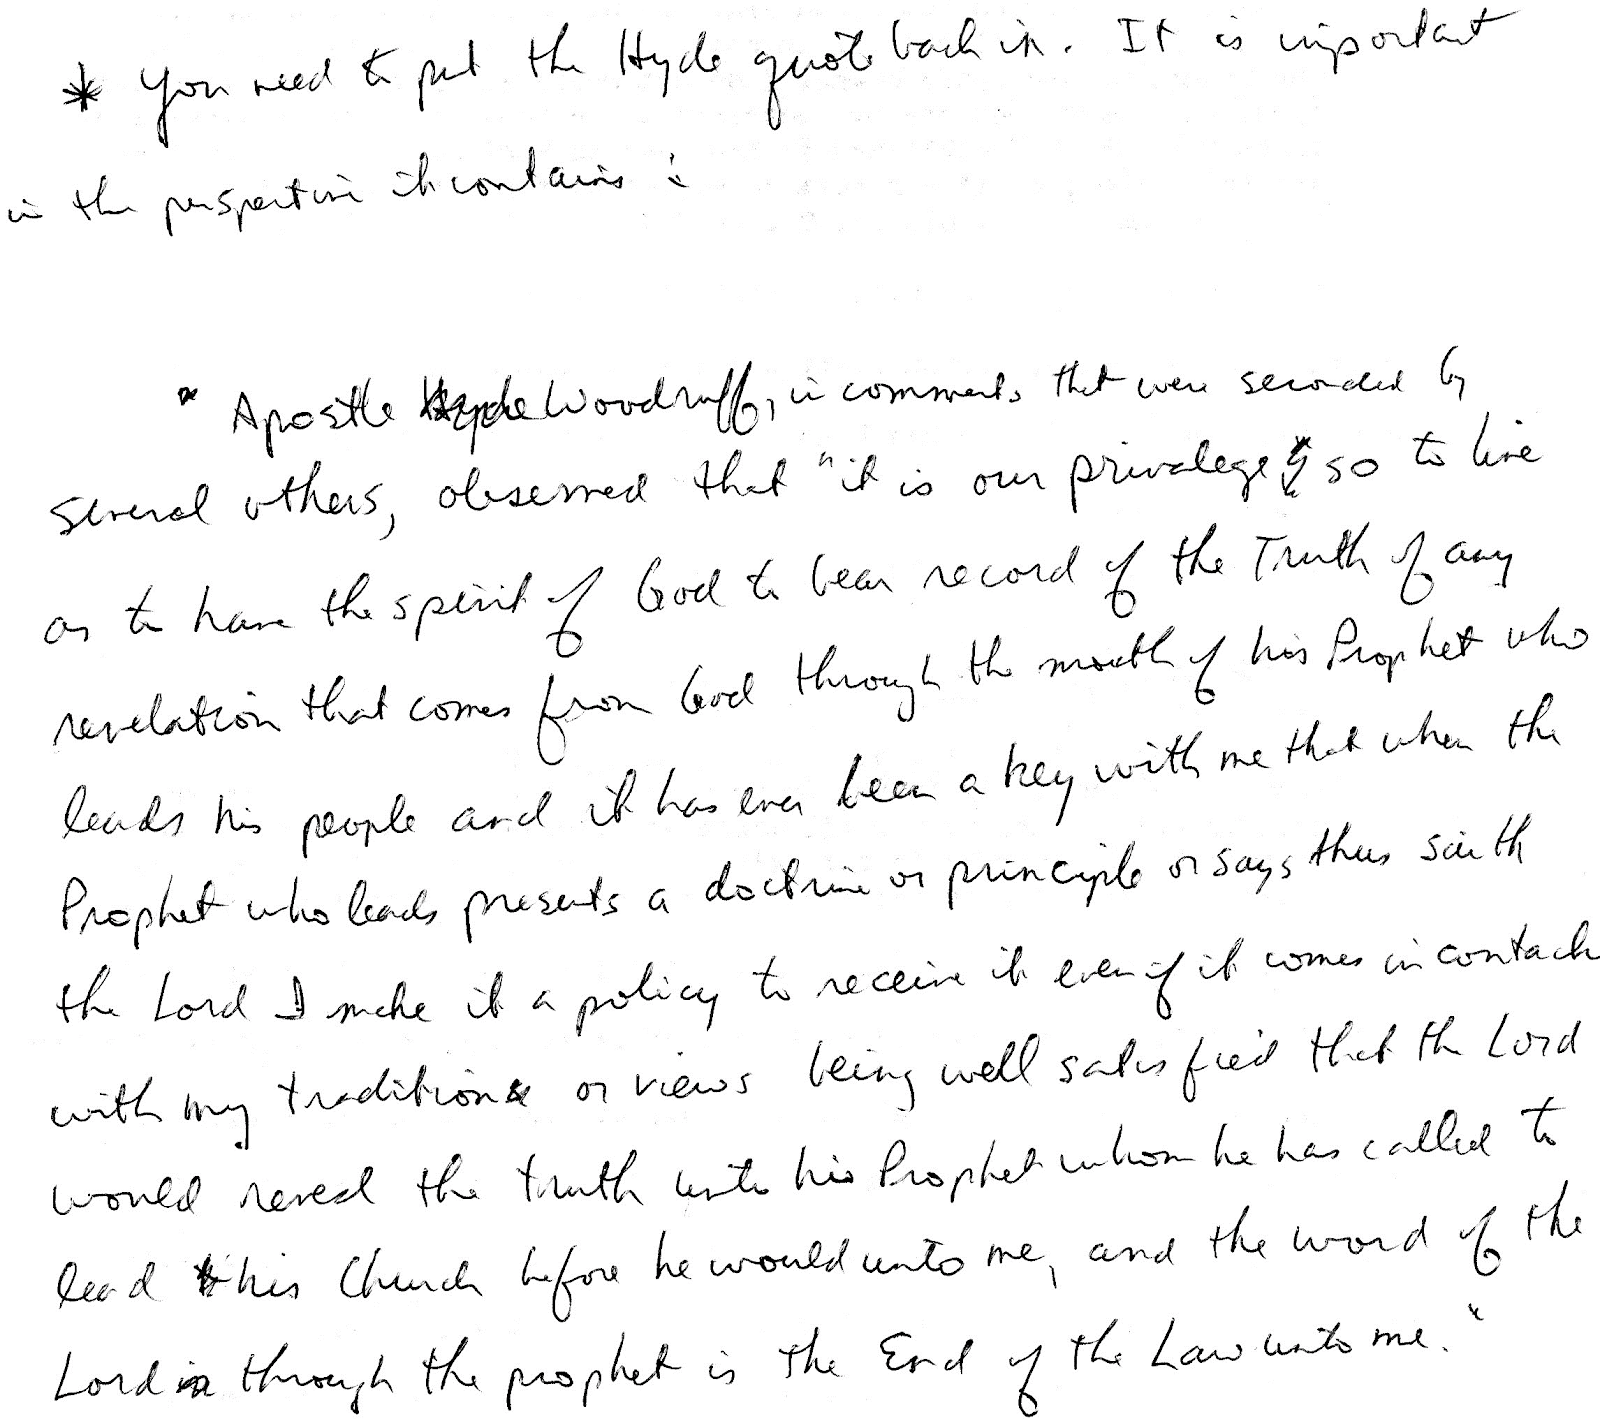 * You need to put the Hyde quote back in. It is important
in the perspective it contains:
" Apostle Hyde Woodruff, in comments that were seconded by
several others, observed that "it is our privalege so to live
as to have the spirit of God to bear record of the Truth of any
revelation that comes from God through the mouth of his Prophet who
leads his people and it has ever been a key with me that when the
Prophet who leads presents a doctrine or principle or says thus saith
the Lord I make it a policy to receive it even if it comes in contack
with my tradition or views being well satisfied that the Lord
would reveal the truth unto his Prophet whom he has called to
lead his Church before he would unto me, and the word of the
Lord through the prophet is the End of the Law unto me."